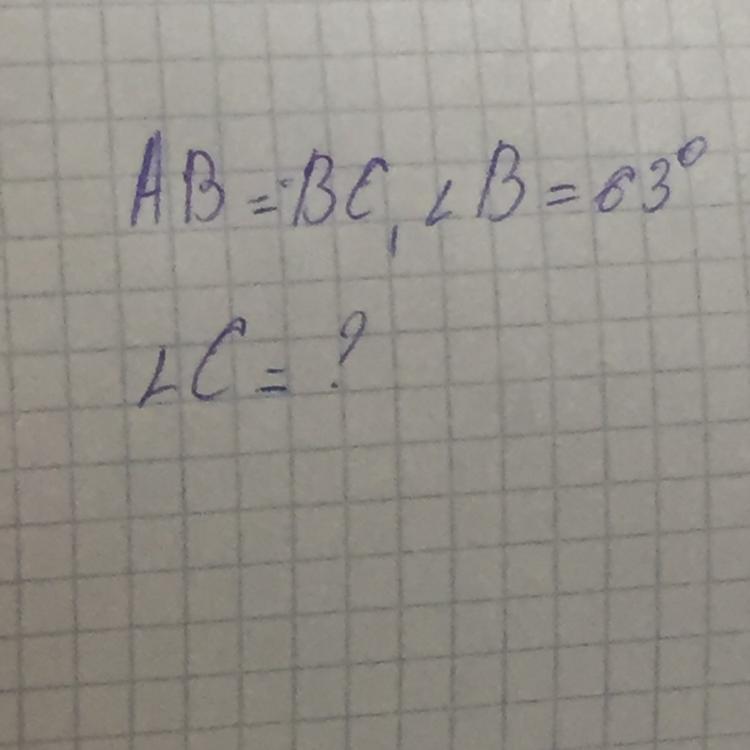 AB = BC, ∠B = 63°
∠C = ?